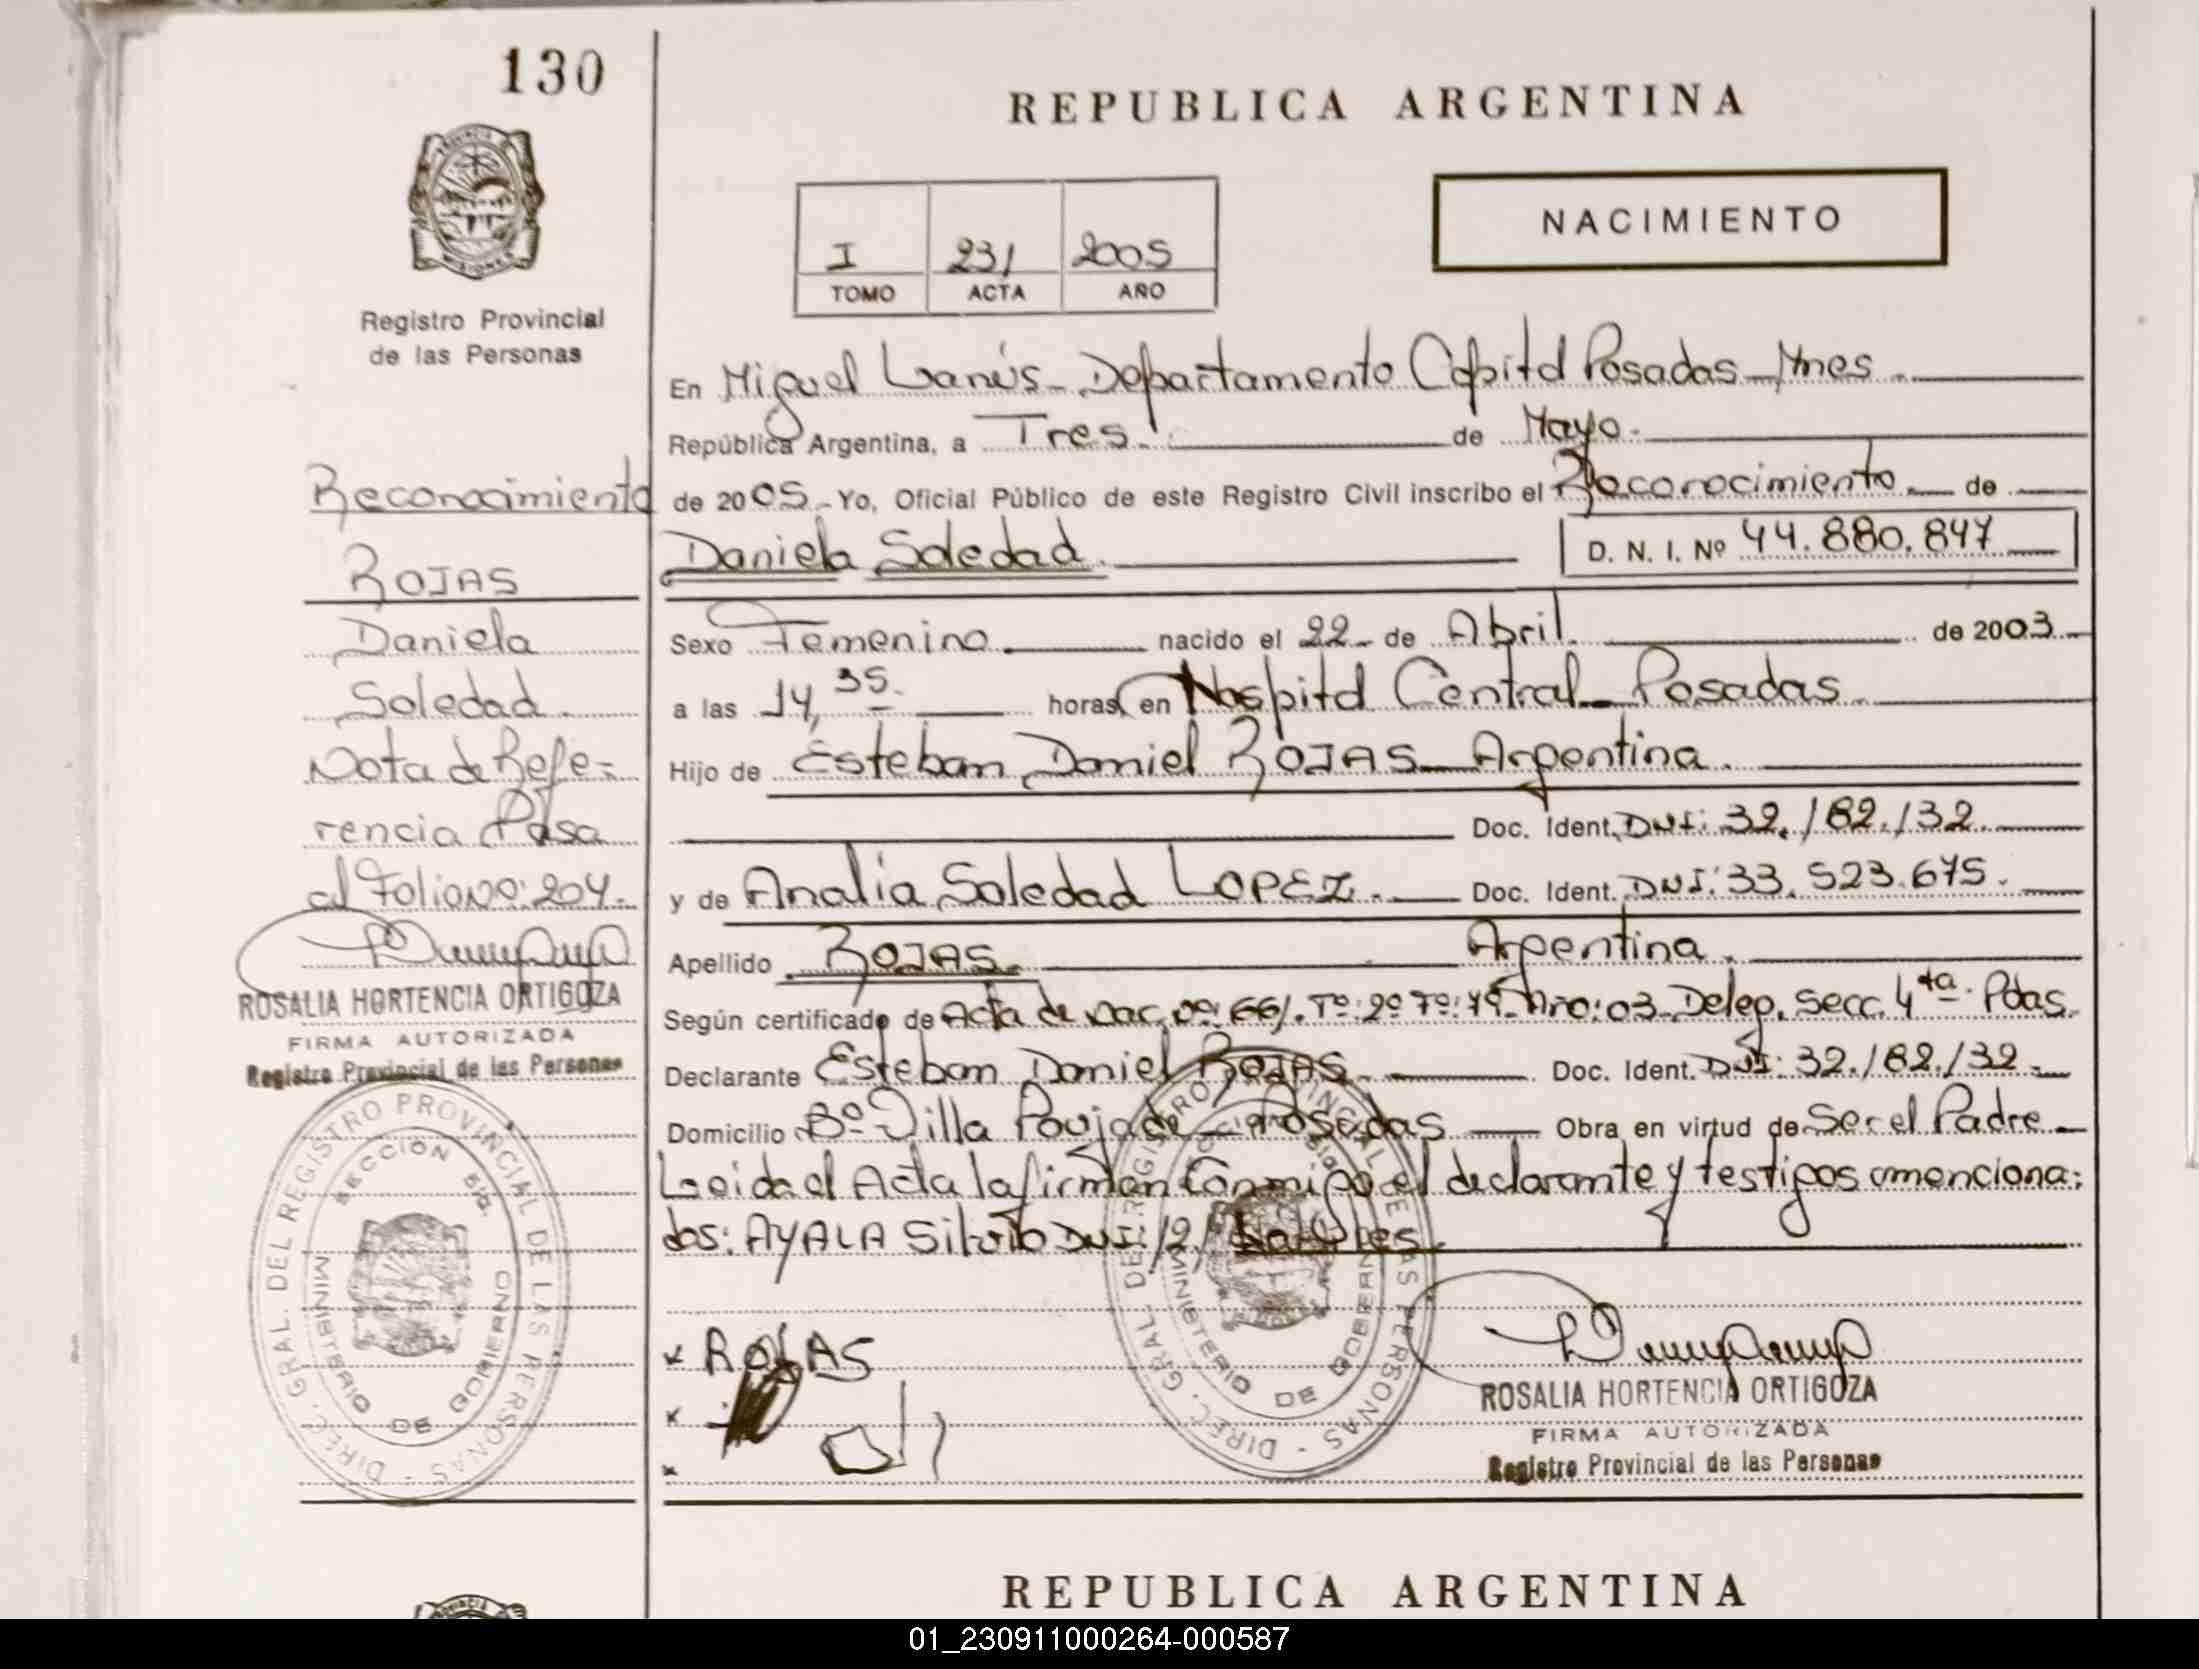 130
REPUBLICA ARGENTINA
PROVINCIA DE
MISIONES
Registro Provincial
de las Personas
I 231 2005
TOMO ACTA AÑO
NACIMIENTO
En Miguel Lanús - Departamento Capital Posadas - Mnes.
República Argentina, a Tres. de Mayo.
de 2005.- Yo, Oficial Público de este Registro Civil inscribo el Reconocimiento de
Daniela Soledad.
D. N. I. Nº 44.880.847
Sexo Femenino nacido el 22 - de Abril. de 2003.
a las 14,35. horas, en Hospital Central - Posadas.
Hijo de Esteban Daniel ROJAS - Argentina.
Doc. Ident. DNI: 32.182.132.
y de Analia Soledad LOPEZ. Doc. Ident. DNI: 33.523.675.
Apellido ROJAS. Argentina.
Según certificado de Acta de Nac. Nº: 661. Tº: 2º Fº: 79. Año: 03 - Deleg. Secc. 4ta. Pdas.
Declarante Esteban Daniel ROJAS. Doc. Ident. DNI: 32.182.132.
Domicilio Bº Villa Poujade - Posadas Obra en virtud de Ser el Padre
Leida el Acta la firman conmigo el declarante y testigos menciona:
dos: AYALA Silvio DNI: 12
x ROJAS
x
x
ROSALIA HORTENCIA ORTIGOZA
FIRMA AUTORIZADA
Registro Provincial de las Personas
Reconocimiento
ROJAS
Daniela
Soledad.
Nota de Refe-
rencia Pasa
al Folio Nº: 204.
ROSALIA HORTENCIA ORTIGOZA
FIRMA AUTORIZADA
Registro Provincial de las Personas
DIREC. GRAL. DEL REGISTRO PROVINCIAL DE LAS PERSONAS
SECCION 5ta.
MINISTERIO DE GOBIERNO
DIREC. GRAL. DEL REGISTRO PROVINCIAL DE LAS PERSONAS
MINISTERIO DE GOBIERNO
REPUBLICA ARGENTINA
01_230911000264-000587